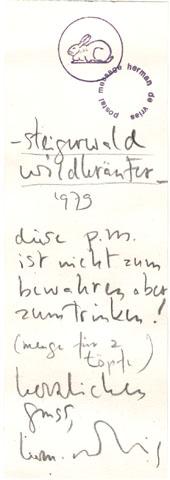 postal message herman de vries
– steigerwald
wildkräuter –
'979
diese p.m.
ist nicht zum
bewahren aber
zum trinken!
(menge für 2
töpfe)
herzlichen
gruss,